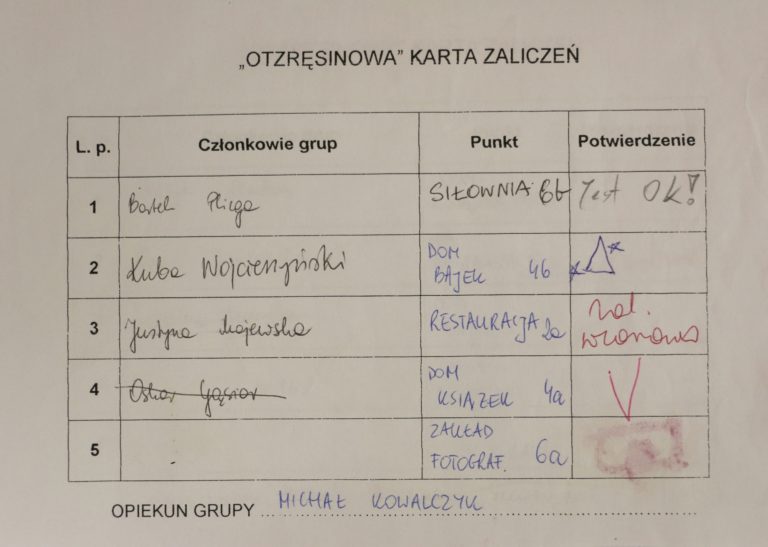 „OTZRĘSINOWA” KARTA ZALICZEŃ
L. p. Członkowie grup Punkt Potwierdzenie
1 Bartek Plicga SIŁOWNIA 6b Jest OK!
2 Kuba DOM BAJEK 4b
3 Justyna Majewska RESTAURACJA 2a zal.
4 Oskar Gąsior DOM KSIĄŻEK 4a
5 ZAKŁAD FOTOGRAF. 6a
OPIEKUN GRUPY MICHAŁ KOWALCZYK